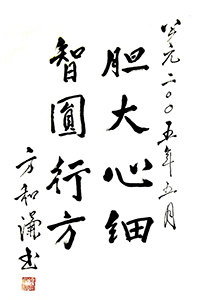 公元二〇〇五年五月
胆大心细
智圆行方
方和谦书